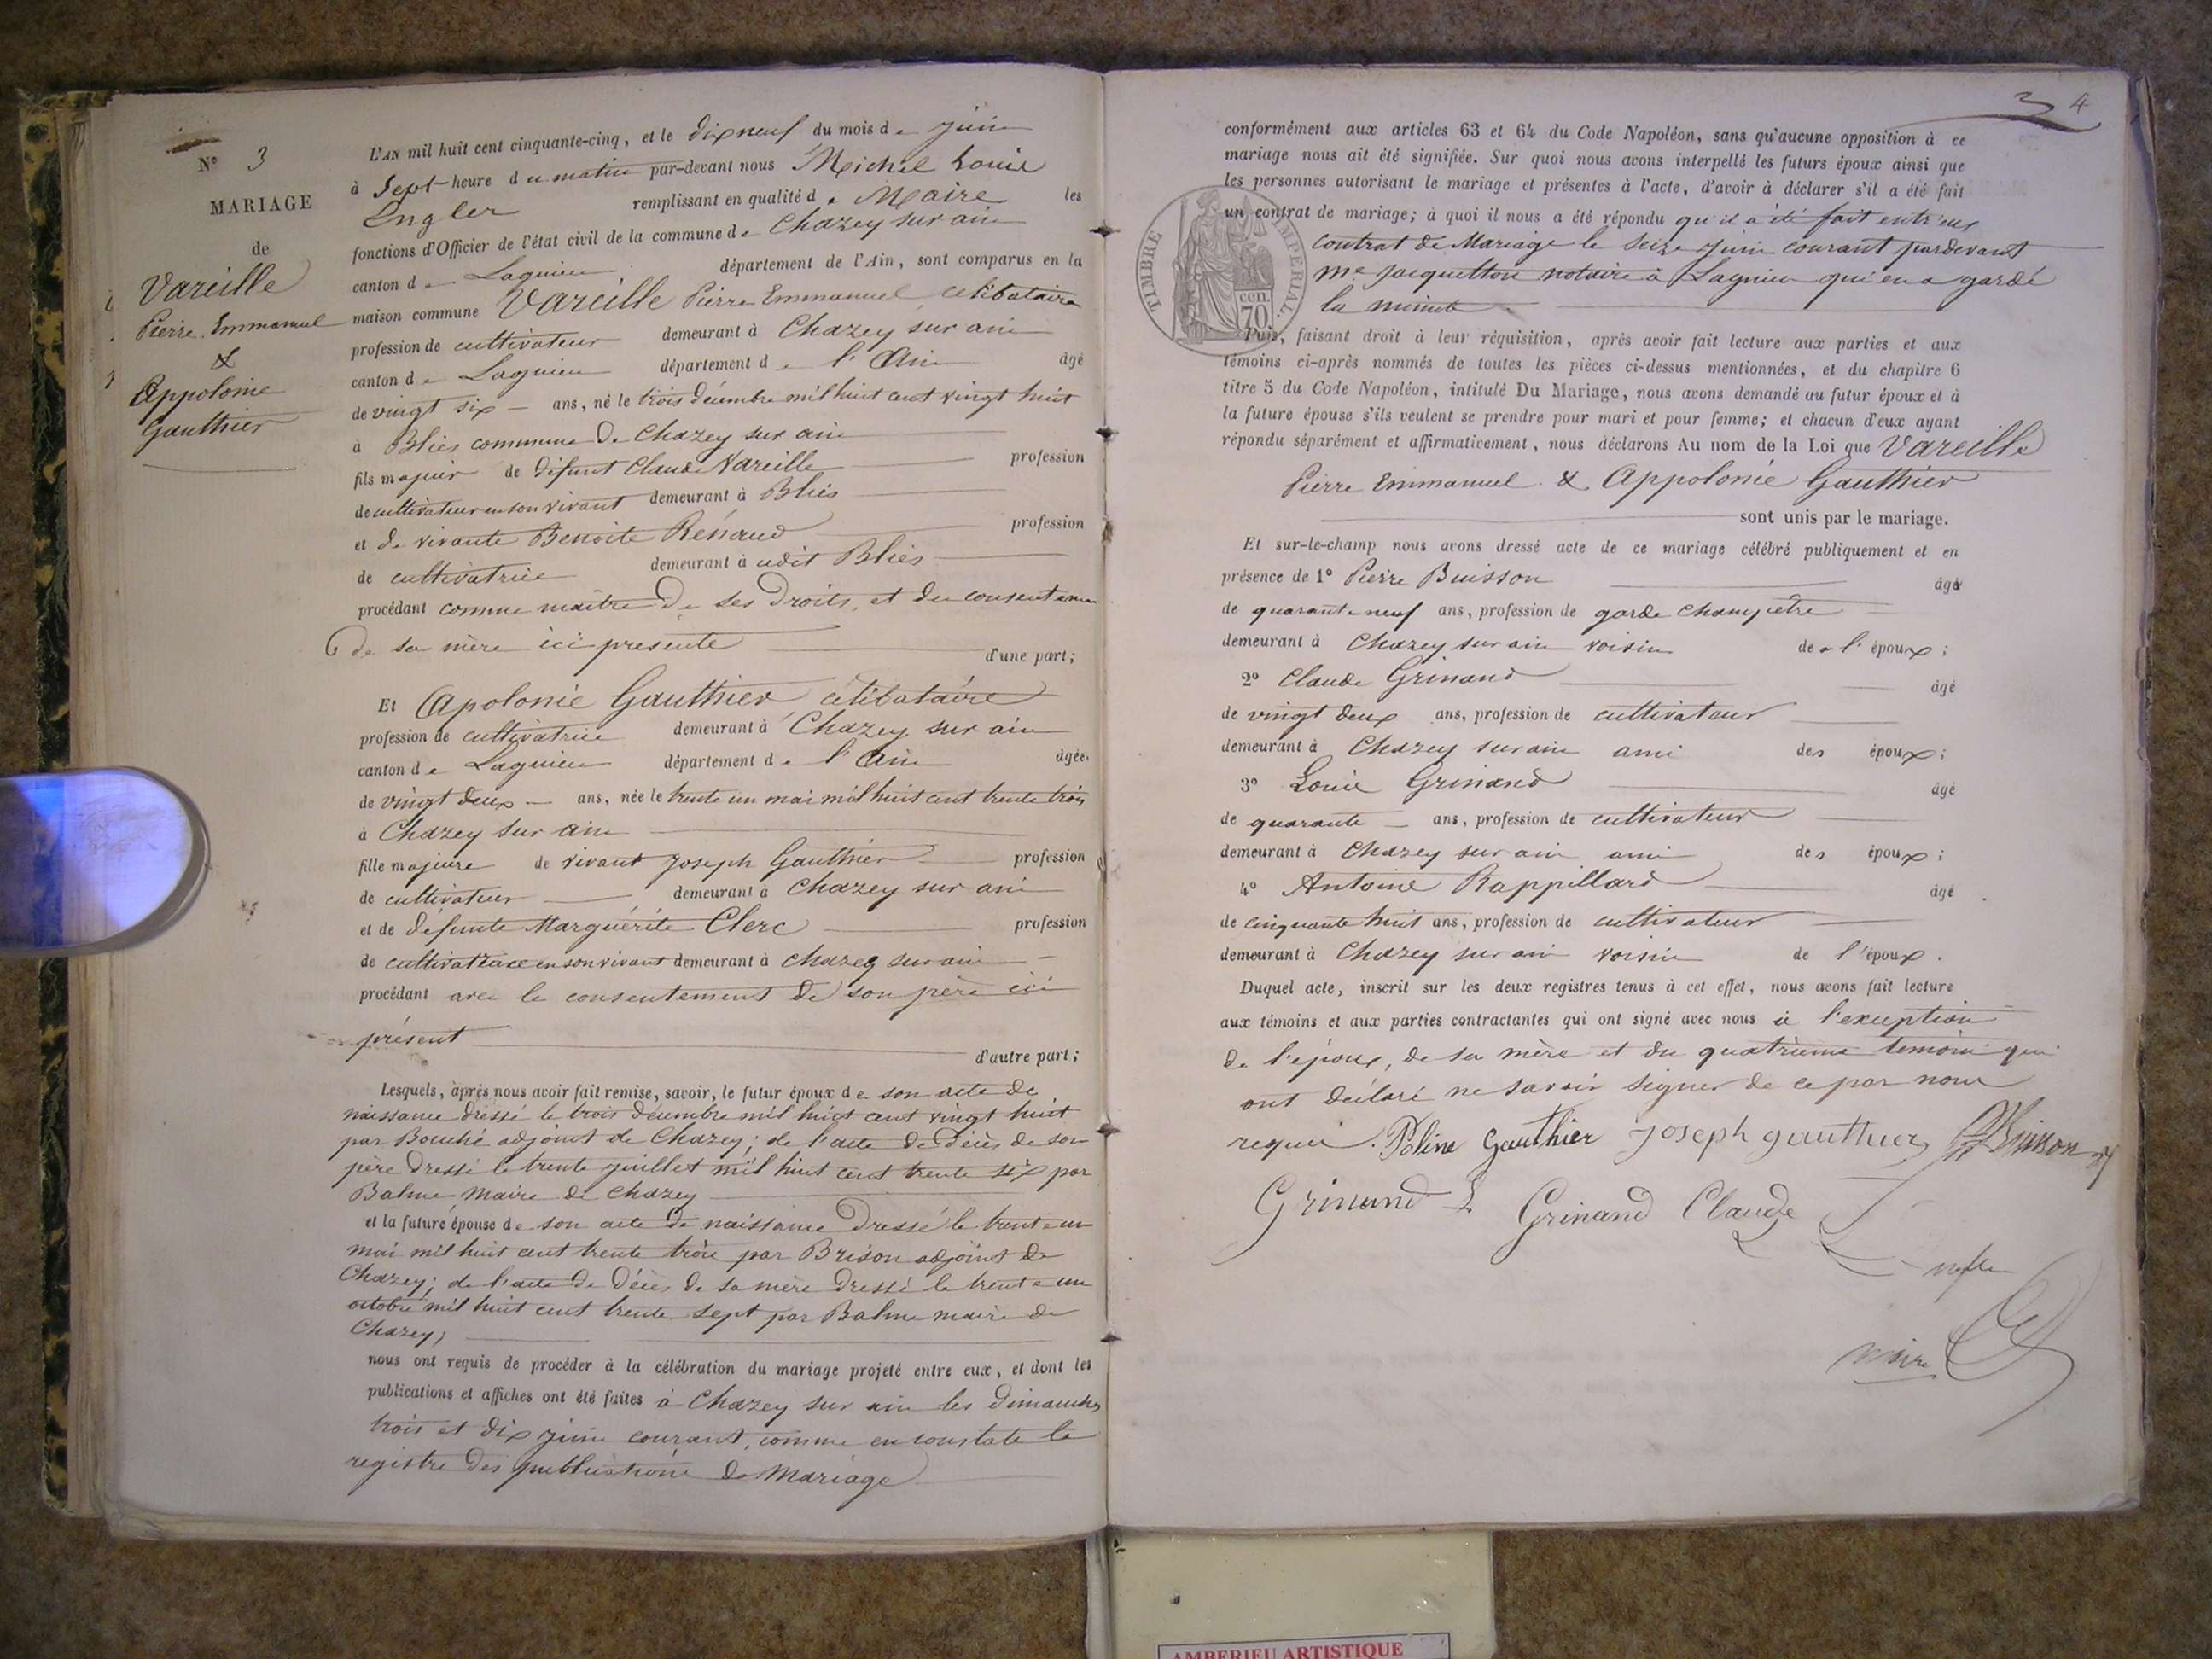 N° 3
MARIAGE
de
Vareille
Pierre Emmanuel
&
Appolonie
Gauthier
L'AN mil huit cent cinquante-cinq, et le dix neuf du mois de juin
à Sept heure du matin par-devant nous Michel Louis
Engler remplissant en qualité de Maire les
fonctions d'Officier de l'état civil de la commune de Chazey sur ain
canton de Lagnieu département de l'Ain, sont comparus en la
maison commune Vareille Pierre Emmanuel célibataire
profession de cultivateur demeurant à Chazey sur ain
canton de Lagnieu département de l'Ain âgé
de vingt six ans, né le trois décembre mil huit cent vingt huit
à Bliès commune de Chazey sur ain
fils majeur de défunt Claude Vareille profession
de cultivateur en son vivant demeurant à Bliès
et de vivante Benoite Renaud profession
de cultivatrice demeurant à udit Bliès
procédant comme maître de ses droits, et du consentement
de sa mère ici présente d'une part;
Et Apolonie Gauthier célibataire
profession de cultivatrice demeurant à Chazey sur ain
canton de Lagnieu département de l'Ain âgée
de vingt deux ans, née le trente un mai mil huit cent trente trois
à Chazey sur ain
fille majeure de vivant Joseph Gauthier profession
de cultivateur demeurant à Chazey sur ain
et de défunte Marguérite Clerc profession
de cultivatrice en son vivant demeurant à Chazey sur ain
procédant avec le consentement de son père ici
présent d'autre part;
Lesquels, après nous avoir fait remise, savoir, le futur époux de son acte de
naissance dressé le trois décembre mil huit cent vingt huit
par Bouché adjoint de Chazey; de l'acte de décès de son
père dressé le trente juillet mil huit cent trente six par
Balme maire de Chazey
et la future épouse de son acte de naissance dressé le trente un
mai mil huit cent trente trois par Brison adjoint de
Chazey; de l'acte de décès de sa mère dressé le trente un
octobre mil huit cent trente sept par Balme maire de
Chazey;
nous ont requis de procéder à la célébration du mariage projeté entre eux, et dont les
publications et affiches ont été faites à Chazey sur ain les dimanches
trois et dix juin courant, comme en constate le
registre des publications de Mariage
3 4
conformément aux articles 63 et 64 du Code Napoléon, sans qu'aucune opposition à ce
mariage nous ait été signifiée. Sur quoi nous avons interpellé les futurs époux ainsi que
les personnes autorisant le mariage et présentes à l'acte, d'avoir à déclarer s'il a été fait
un contrat de mariage; à quoi il nous a été répondu qu'il a été fait entr'eux
contrat de Mariage le seize juin courant pardevant
Me Jacquetton notaire à Lagnieu qui en a gardé
la minute
TIMBRE IMPERIAL.
cen.
70
Puis, faisant droit à leur réquisition, après avoir fait lecture aux parties et aux
témoins ci-après nommés de toutes les pièces ci-dessus mentionnées, et du chapitre 6
titre 5 du Code Napoléon, intitulé Du Mariage, nous avons demandé au futur époux et à
la future épouse s'ils veulent se prendre pour mari et pour femme; et chacun d'eux ayant
répondu séparément et affirmativement, nous déclarons Au nom de la Loi que Vareille
Pierre Emmanuel & Appolonie Gauthier
sont unis par le mariage.
Et sur-le-champ nous avons dressé acte de ce mariage célébré publiquement et en
présence de 1° Pierre Buisson âgé
de quarante neuf ans, profession de garde champêtre
demeurant à Chazey sur ain voisin de l'époux;
2° Claude Grinand âgé
de vingt deux ans, profession de cultivateur
demeurant à Chazey sur ain ami des époux;
3° Louis Grinand âgé
de quarante ans, profession de cultivateur
demeurant à Chazey sur ain ami des époux;
4° Antoine Rappillard âgé
de cinquante huit ans, profession de cultivateur
demeurant à Chazey sur ain voisin de l'époux.
Duquel acte, inscrit sur les deux registres tenus à cet effet, nous avons fait lecture
aux témoins et aux parties contractantes qui ont signé avec nous à l'exception
de l'époux, de sa mère et du quatrième témoin qui
ont déclaré ne savoir signer de ce par nous
requis. Poline Gauthier Joseph gauthier Buisson
Grinand L Grinand Claude
maire
AMBERIEU ARTISTIQUE